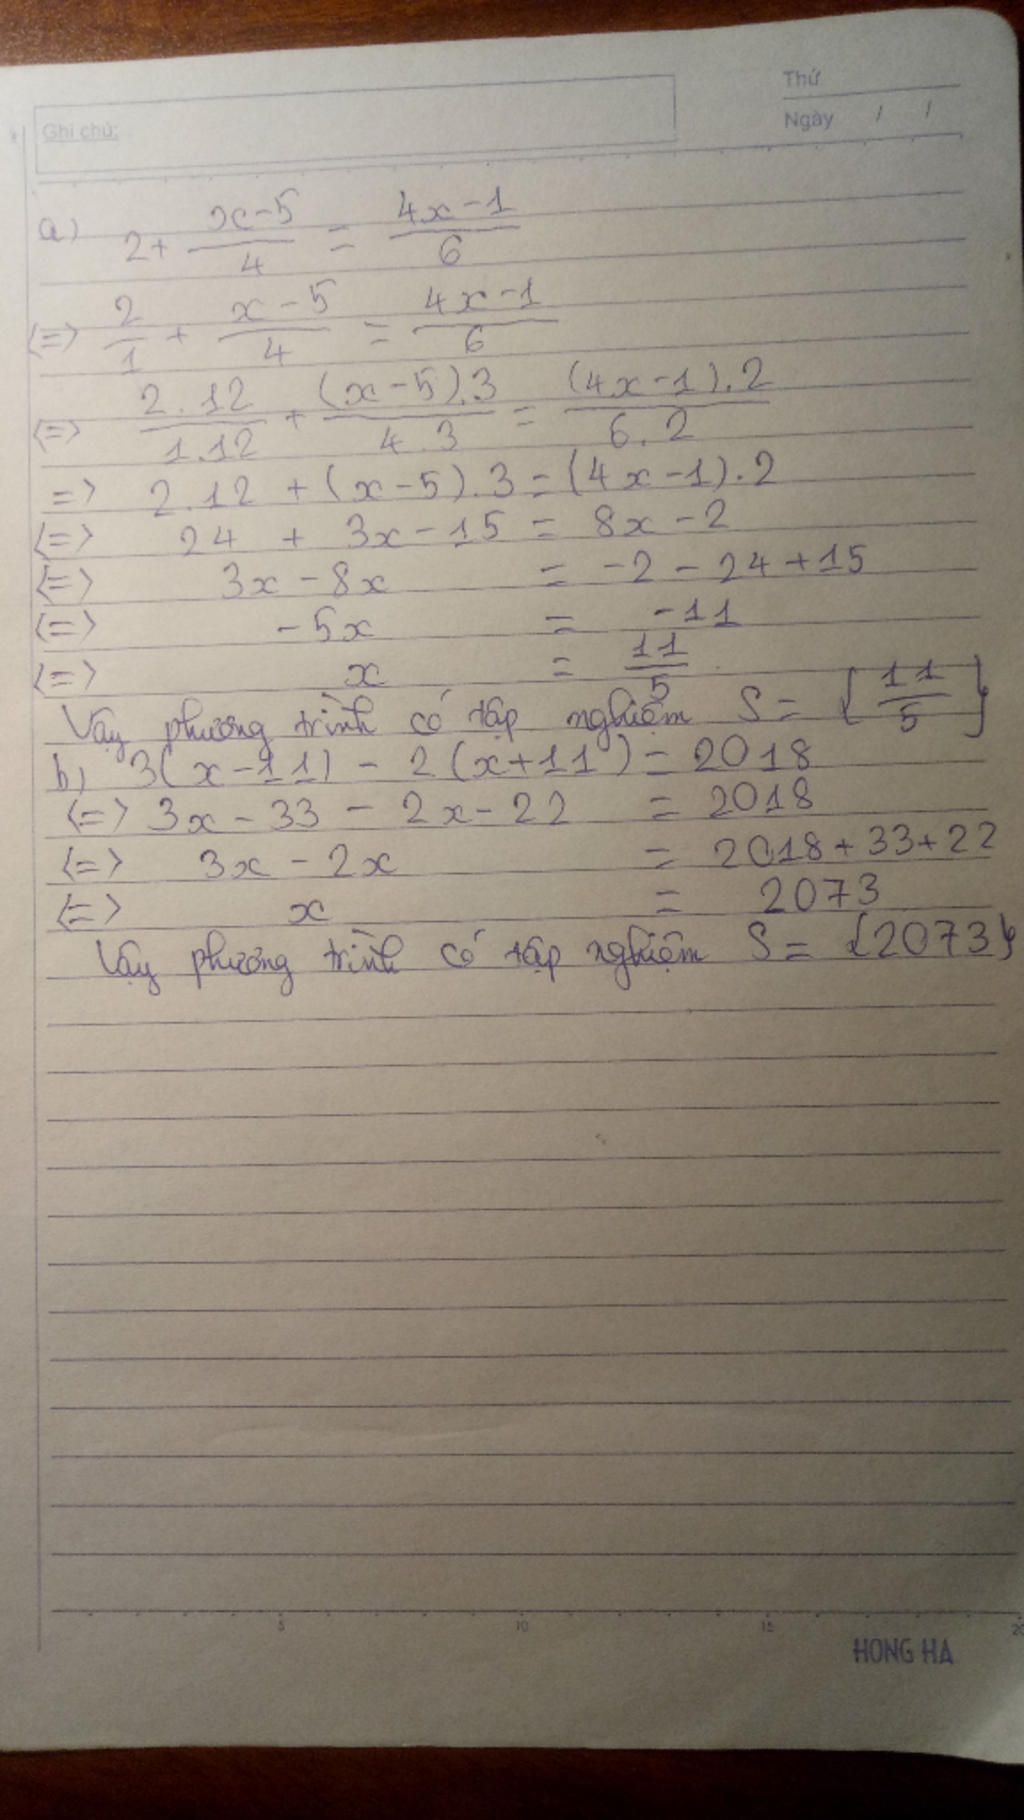 Thứ
Ghi chú:
Ngày / /
a) 2 + (x-5)/4 = (4x-1)/6
<=> 2/1 + (x-5)/4 = (4x-1)/6
<=> (2.12)/(1.12) + ((x-5).3)/(4.3) = ((4x-1).2)/(6.2)
=> 2.12 + (x-5).3 = (4x-1).2
<=> 24 + 3x-15 = 8x-2
<=> 3x-8x = -2-24+15
<=> -5x = -11
<=> x = 11/5
Vậy phương trình có tập nghiệm S = {11/5}
b) 3(x-11) - 2(x+11) = 2018
<=> 3x-33 - 2x-22 = 2018
<=> 3x-2x = 2018+33+22
<=> x = 2073
Vậy phương trình có tập nghiệm S = {2073}
5 10 15 20
HONG HA